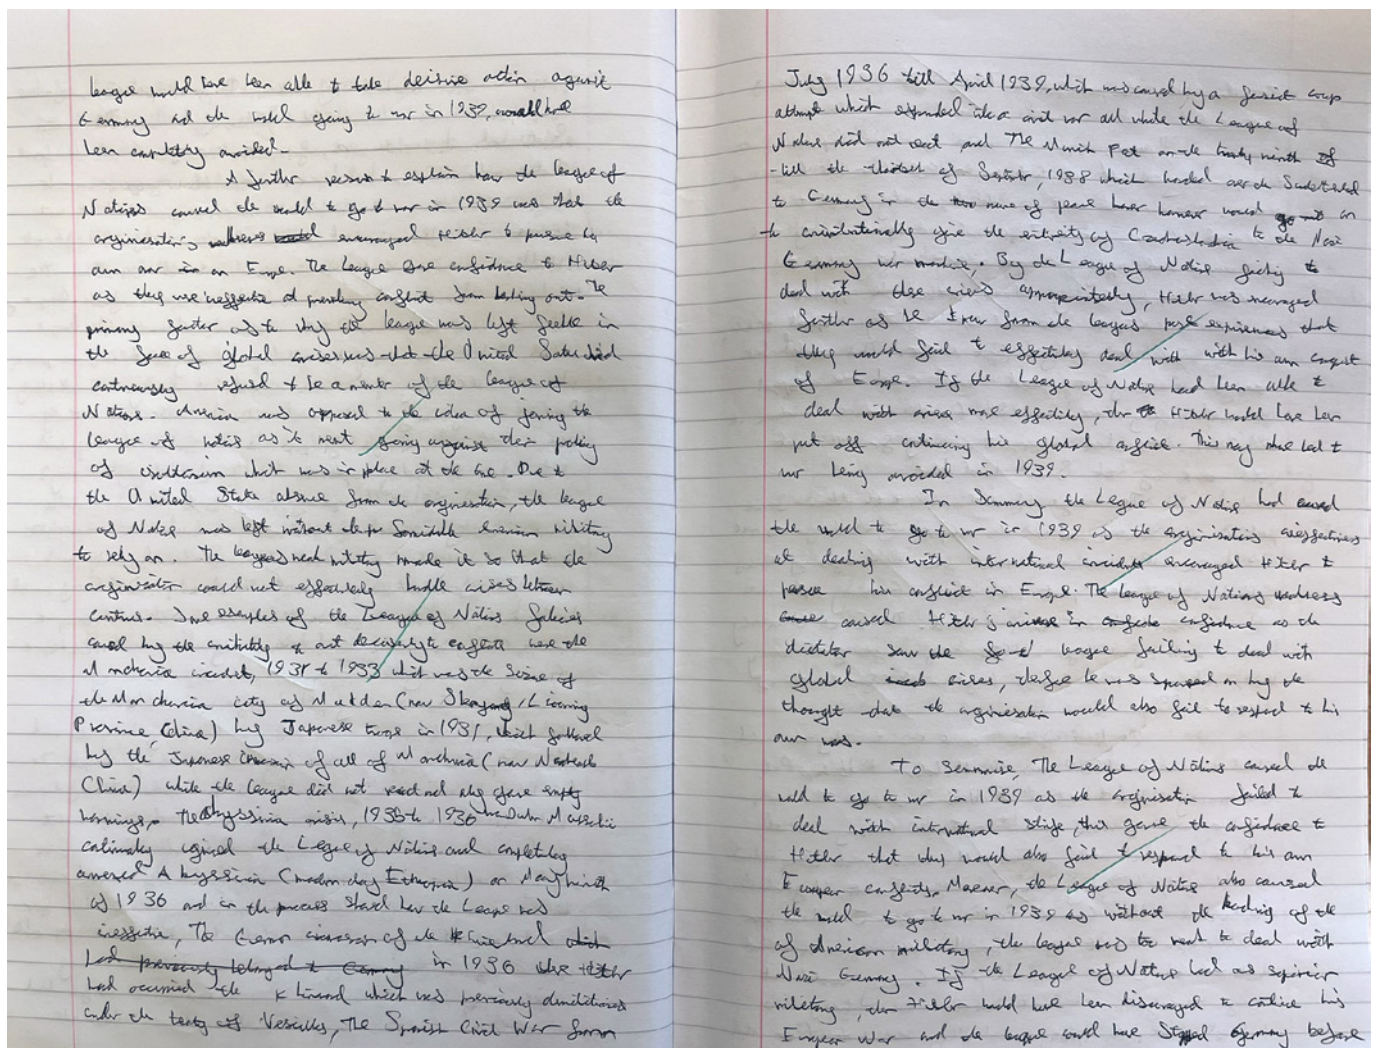 league would have been able to take decisive action against
Germany and the world going to war in 1939, would have
been completely avoided.
A further reason to explain how the league of
Nations caused the world to go to war in 1939 was that the
organisations encouraged Hitler to pursue his
own war in Europe. The League gave confidence to Hitler
as they were ineffective at preventing conflict from breaking out. The
primary factor as to why the league was left feeble in
the face of global crises was that the United States had
continuously refused to be a member of the league of
Nations. America was opposed to the idea of joining the
league of nations as it meant going against their policy
of which was in place at the time. Due to
the United State absence from the organisation, the league
of Nations was left without the American military
to rely on. The leagues weak military made it so that the
organisation could not effectively handle crises between
Some examples of the League of Nations failures
caused by the were the
incident, 1931 to 1933, which was the Seizure of
the Manchurian city of Mukden (now / Liaoning
Province, China) by Japanese troops in 1931, which followed
by the Japanese invasion of all of Manchuria (now
China) while the league did not react and only gave empty
warnings, The Abyssinia crisis, 1935 to 1936
the League of Nations and completely
annexed Abyssinia (modern day Ethiopia) on May
of 1936 and in the process how the League was
ineffective, The of the which
had previously belonged to Germany in 1936 where Hitler
had occupied the which was previously
under the treaty of Versailles, The Spanish Civil War from
July 1936 till April 1939, which was caused by a fascist coup
attempt which expanded into a civil war all while the League of
Nations did not react and The Munich Pact on the twenty ninth
till the of, 1938 which handed over the Sudetenland
to Germany in the name of peace however would go on
to give the entirety of to the Nazi
Germany war machine. By the League of Nations failing to
deal with these crises appropriately, Hitler was encouraged
further as he knew from the leagues past experiences that
they would fail to effectively deal with with his own conquest
of Europe. If the League of Nations had been able to
deal with crises more effectively, then Hitler would have been
put off continuing his global conflict. This may have led to
war being avoided in 1939.
In Summary the League of Nations had caused
the world to go to war in 1939 as the organisations
at dealing with international incidents encouraged Hitler to
his conflict in Europe. The league of Nations weakness
caused Hitler's increase in confidence as the
dictator saw the league failing to deal with
global crises, he was spurred on by the
thought that the organisation would also fail to respond to his
own wars.
To Summarise, The League of Nations caused the
world to go to war in 1939 as the organisation failed to
deal with international strife, this gave the confidence to
Hitler that they would also fail to respond to his own
European conflicts. the League of Nations also caused
the world to go to war in 1939 as without the backing of the
of American military, the league was too weak to deal with
Nazi Germany. If the League of Nations had a superior
military, then Hitler would have been discouraged to continue his
European War and the league could have stopped Germany before